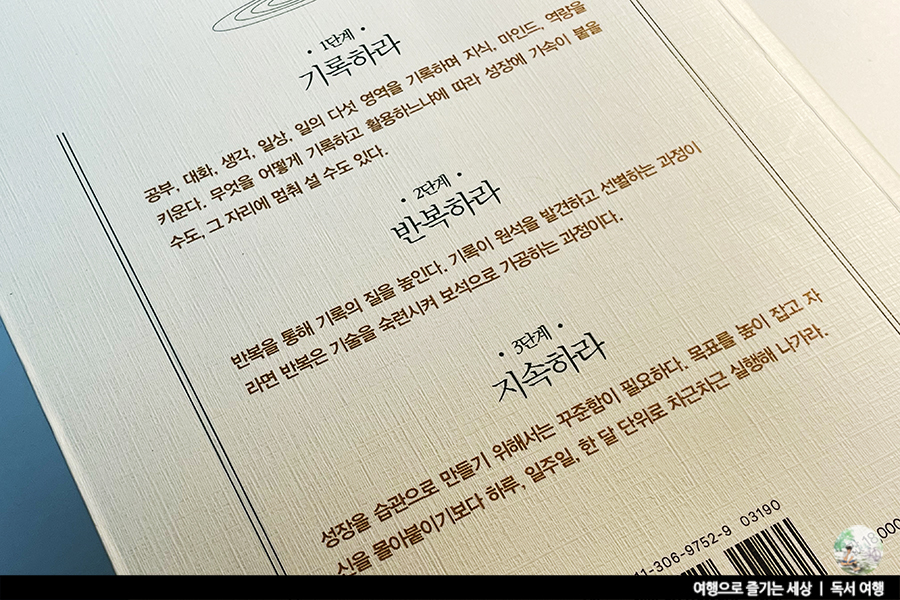 • 1단계 •
기록하라
공부, 대화, 생각, 일상, 일의 다섯 영역을 기록하며 지식, 마인드, 역량을
키운다. 무엇을 어떻게 기록하고 활용하느냐에 따라 성장에 가속이 붙을
수도, 그 자리에 멈춰 설 수도 있다.
• 2단계 •
반복하라
반복을 통해 기록의 질을 높인다. 기록이 원석을 발견하고 선별하는 과정이
라면 반복은 기술을 숙련시켜 보석으로 가공하는 과정이다.
• 3단계 •
지속하라
성장을 습관으로 만들기 위해서는 꾸준함이 필요하다. 목표를 높이 잡고 자
신을 몰아붙이기보다 하루, 일주일, 한 달 단위로 차근차근 실행해 나가라.
11-306-9752-9 03190
여행으로 즐기는 세상 | 독서 여행